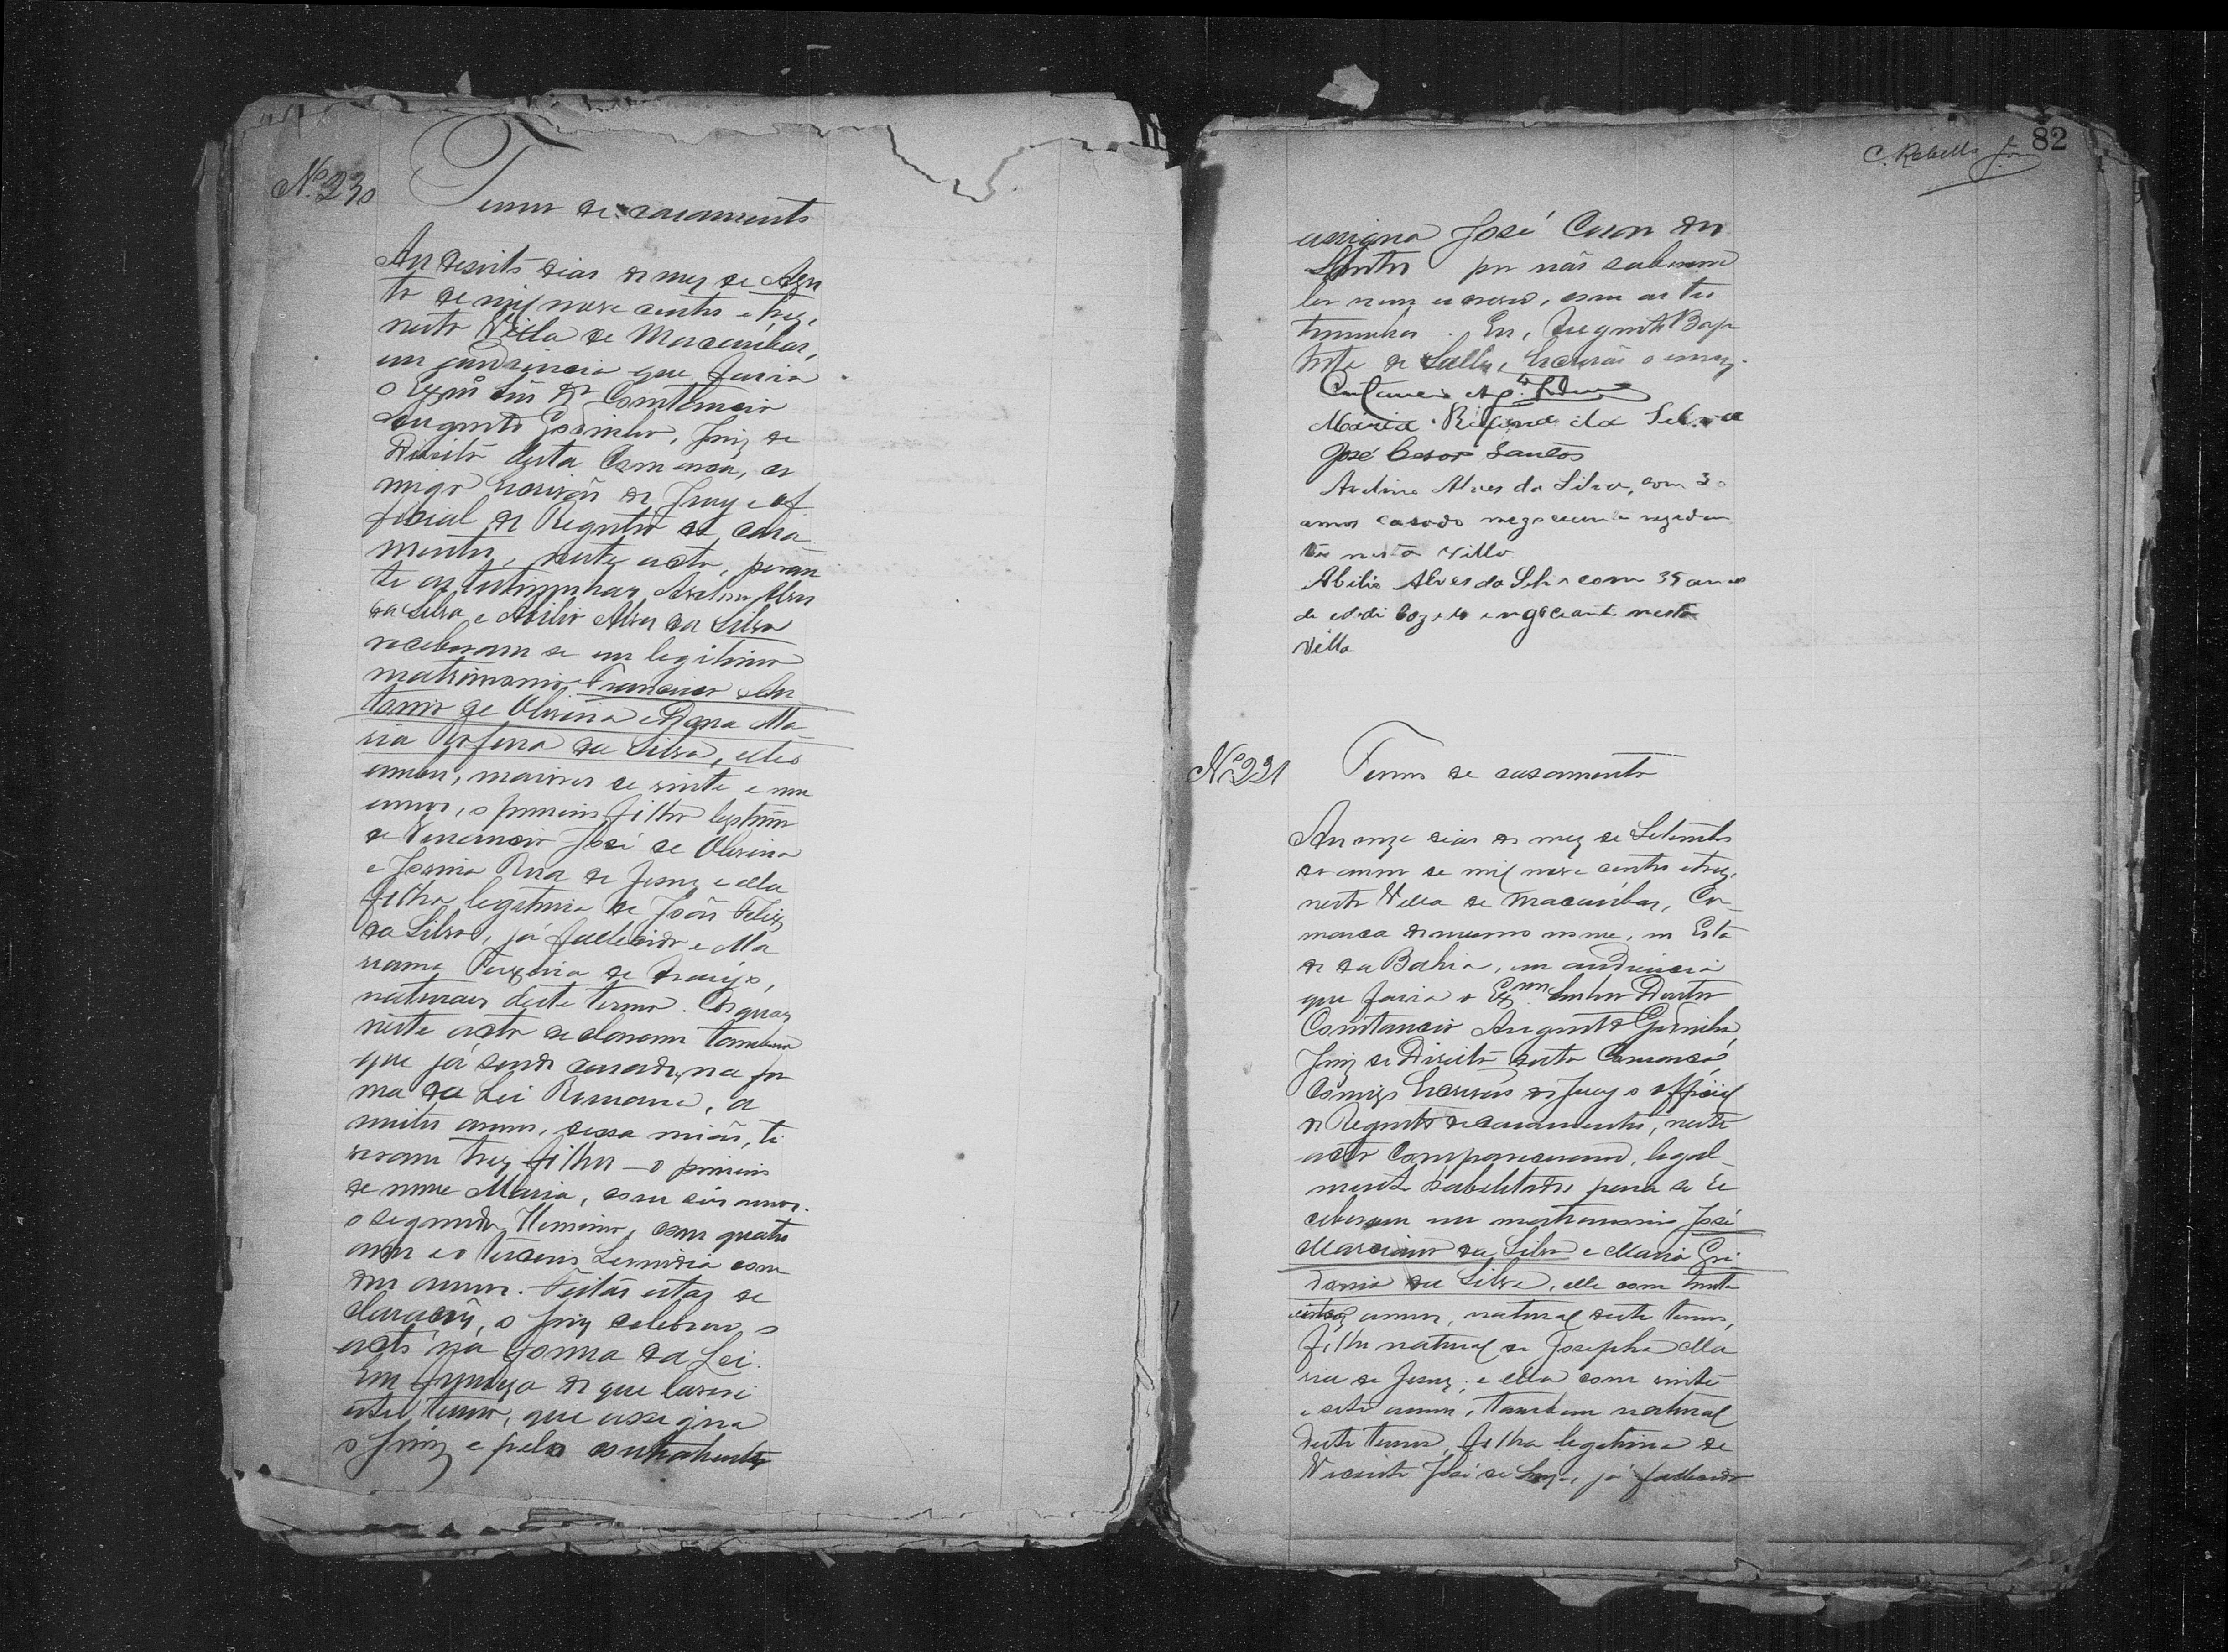 Nº 230
Termo de casamento
Aos desoito dias do mez de Agos
to de mil nove centos e trez,
nesta Villa de Macaubas,
em audiencia que fasia
o Exmº Snr Dr Constancio
Augusto Godinho, Juiz de
Direito desta Comarca, co
migo Escrivão do Jury e of
ficial do Registro de casa
mentos, neste acto, peran
te as testimunhas Avelino Alves
da Silva e Abilio Alves da Silva
receberam se em legitimo
matrimonio Francisco An
tonio de Oliveira e Dona Ma
ria Rofena da Silva, elles
ambos, maiores de vinte e um
annos, o primeiro filho legitimo
de Venancio José de Oliveira
e Rosa de Jesuz e ella
filha legitima de João Felix
da Silva, já fallecido e Ma
rianna de Araujo,
naturaes deste termo. Os quaes
neste acto declararam tambem
que já sendo casados, na for
ma da Lei Romana, a
muitos annos, dessa união, ti
veram trez filhos - o primeiro
de nome Maria, com seis annos.
o segundo com quatro
annos e o terceiro com
dois annos. Feitas estas de
clarações, o Juiz celebrou o
acto na forma da Lei.
Em firmeza do que lavrei
este termo, que assigna
o Juiz e pelos contrahentes
82
C. Rebello
assigna José Cesar dos
Santos por não saberem
ler nem escrever, com as tes
timunhas. Eu, Augusto Bap
tista de Salles, Escrivão o escrevy.
Constancio Ag.to Godinho
Maria Rofena da Silva
José Cesar Santos
Avelino Alves da Silva, com 30
annos casado negociante rezeden
te nesta Villa
Abilio Alves da Silva com 35 annos
de edade Cazado negociante nesta
Villa
Nº 231
Termo de casamento
Aos onze dias do mez de Setembro
do anno de mil nove centos e trez,
nesta Villa de Macaúbas, Co-
marca do mesmo nome, no Esta
do da Bahia, em audiencia
que fasia o Exmo Senhor Doutor
Constancio Augusto Godinho,
Juiz de Direito desta Comarca,
Comigo Escrivão do Jury e official
do Registro de casamentos, neste
acto Compareceram, legal-
mente habilitados para se re
ceberem em matrimonio José
Marciano da Silva e Maria
da Silva, elle com trinta
annos, natural deste termo,
filho natural de Josepha Ma
ria de Jesuz; e ella com vinte
e sete annos, tambem natural
deste termo, filha legitima de
Vicente José de já fallecido